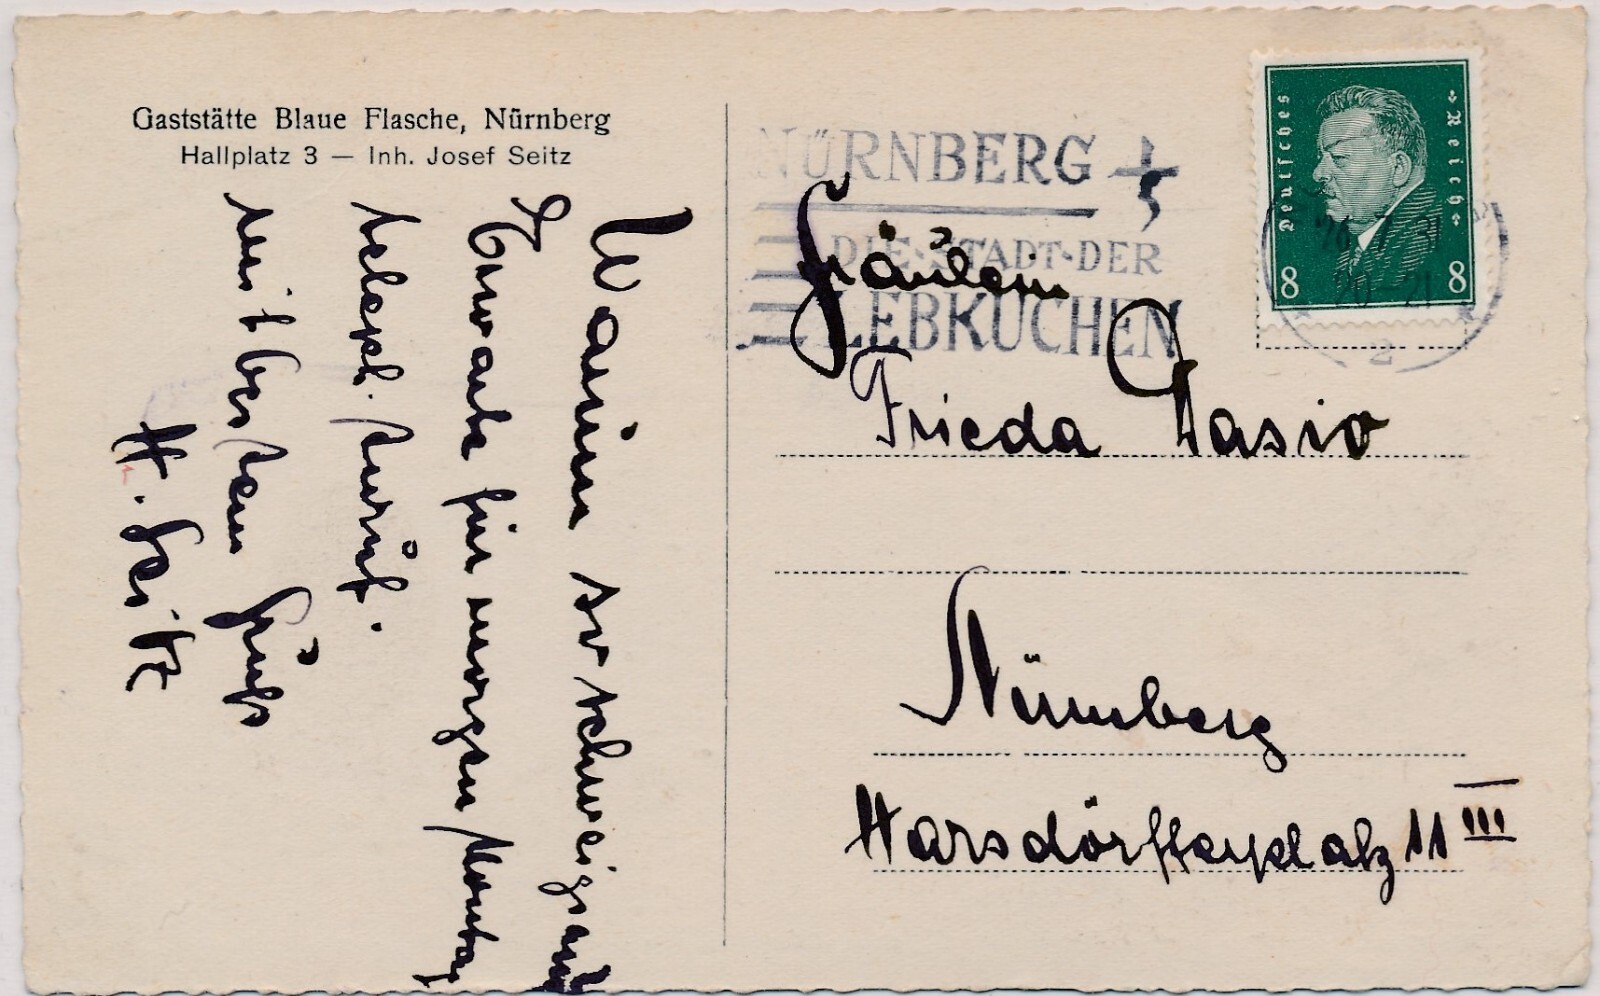 Gaststätte Blaue Flasche, Nürnberg
Hallplatz 3 — Inh. Josef Seitz
Warum so schweigsam
Erwarte für morgen Montag
teleph. Anruf.
mit bestem Gruß
H. Seitz
NÜRNBERG
DIE·STADT·DER
LEBKUCHEN
Deutsches Reich
8 8
26 7 31
20-21
2
Fräulein
Frieda
Nürnberg
Harsdörfferplatz 11 III